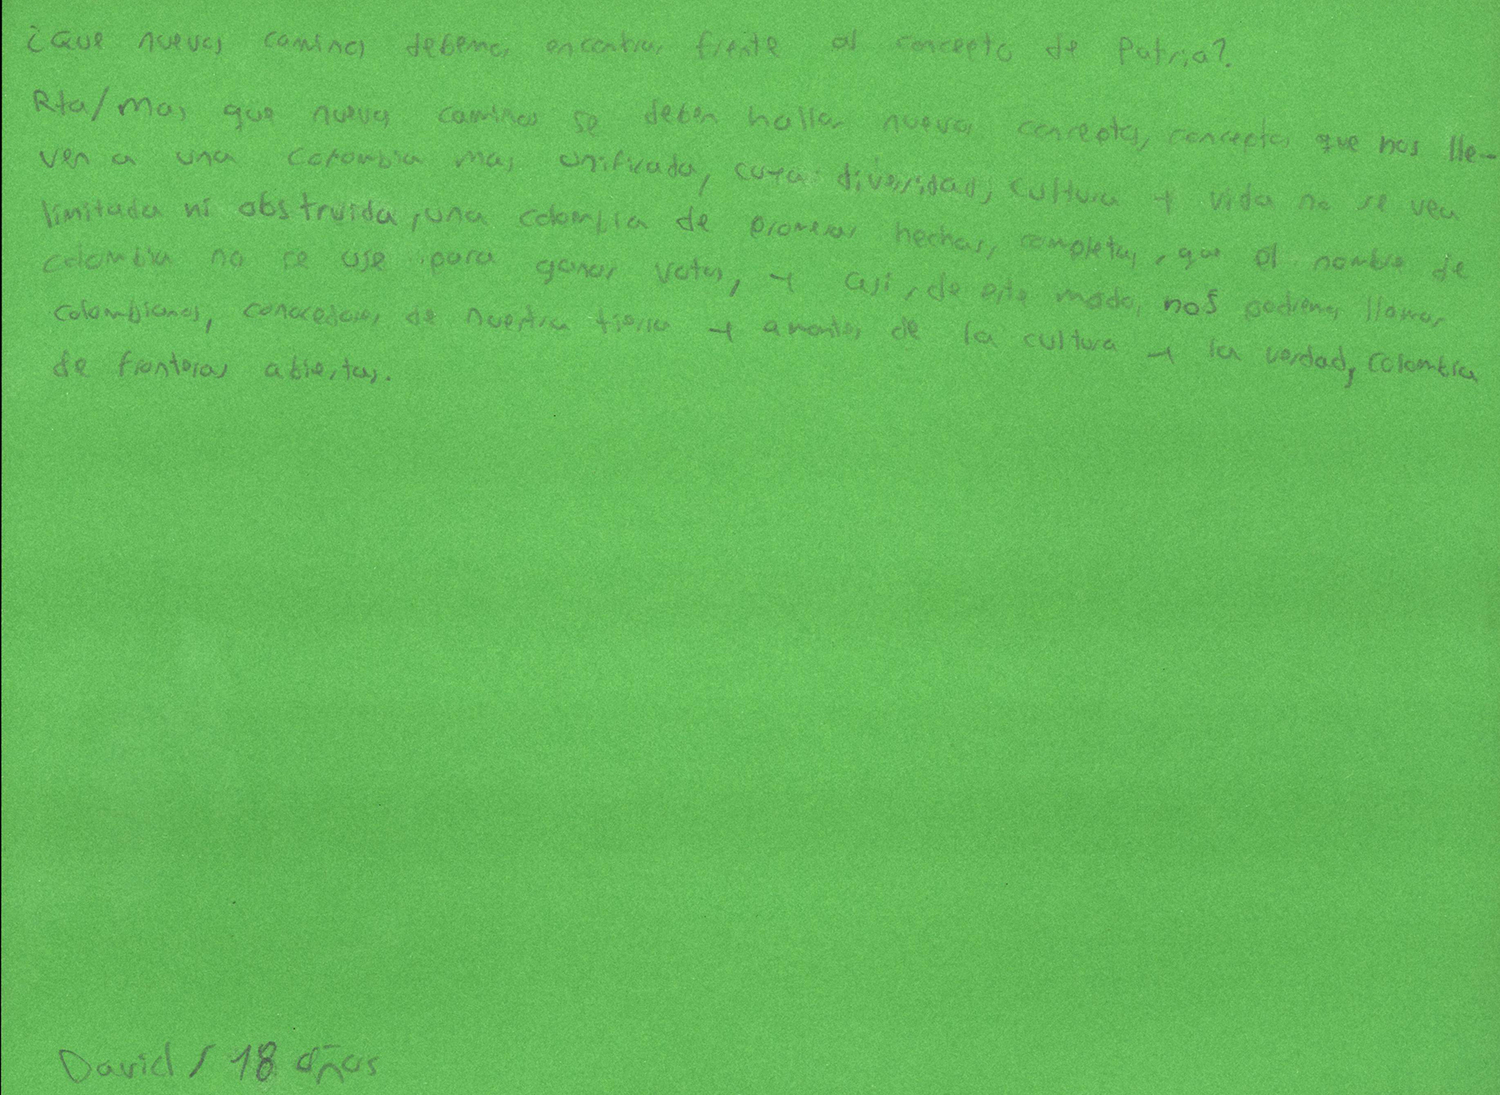 ¿Que nuevos caminos debemos encontrar frente al concepto de Patria?.
Rta/Mas que nuevos caminos se deben hallar nuevos conceptos, conceptos que nos lle-
ven a una colombia mas unificada, cuya diversidad, cultura y vida no se vea
limitada ni obstruida, una colombia de promesas hechas, completas, que el nombre de
colombia no se use para ganar votos, y asi, de este modo, nos podremos llamar
colombianos, conocedores de nuestra tierra y amantes de la cultura y la verdad, Colombia
de fronteras abiertas.
David / 18 años